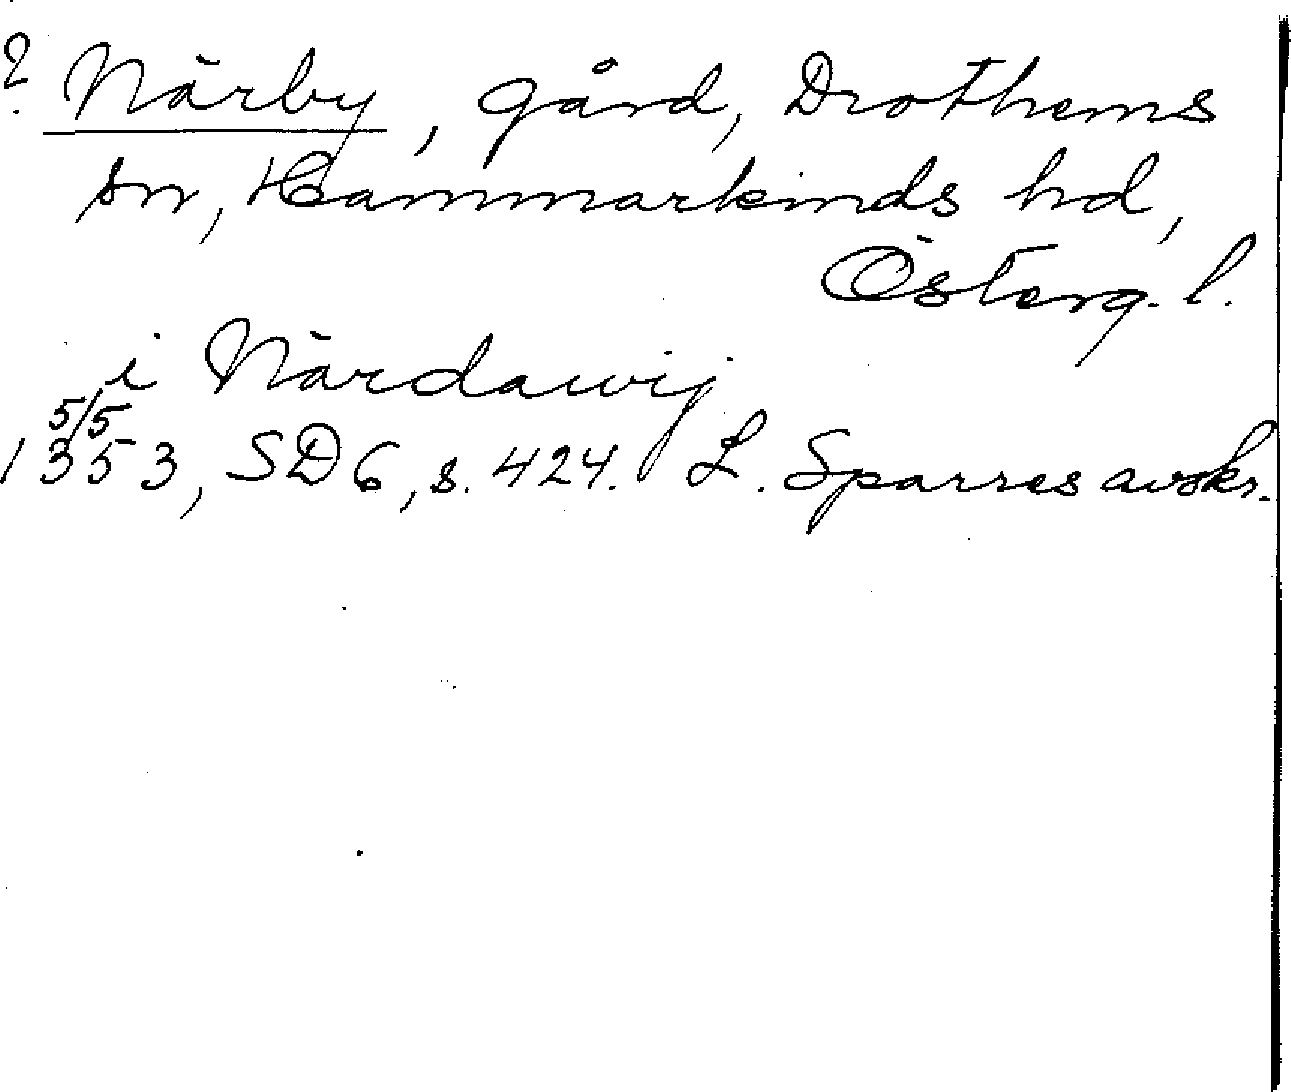 ? Närby, gård, Drothems
sn, Hammarkinds hd,
Österg. l.
i Närdawij
5/5
1353, SD 6, s. 424. L. Sparres avskr.